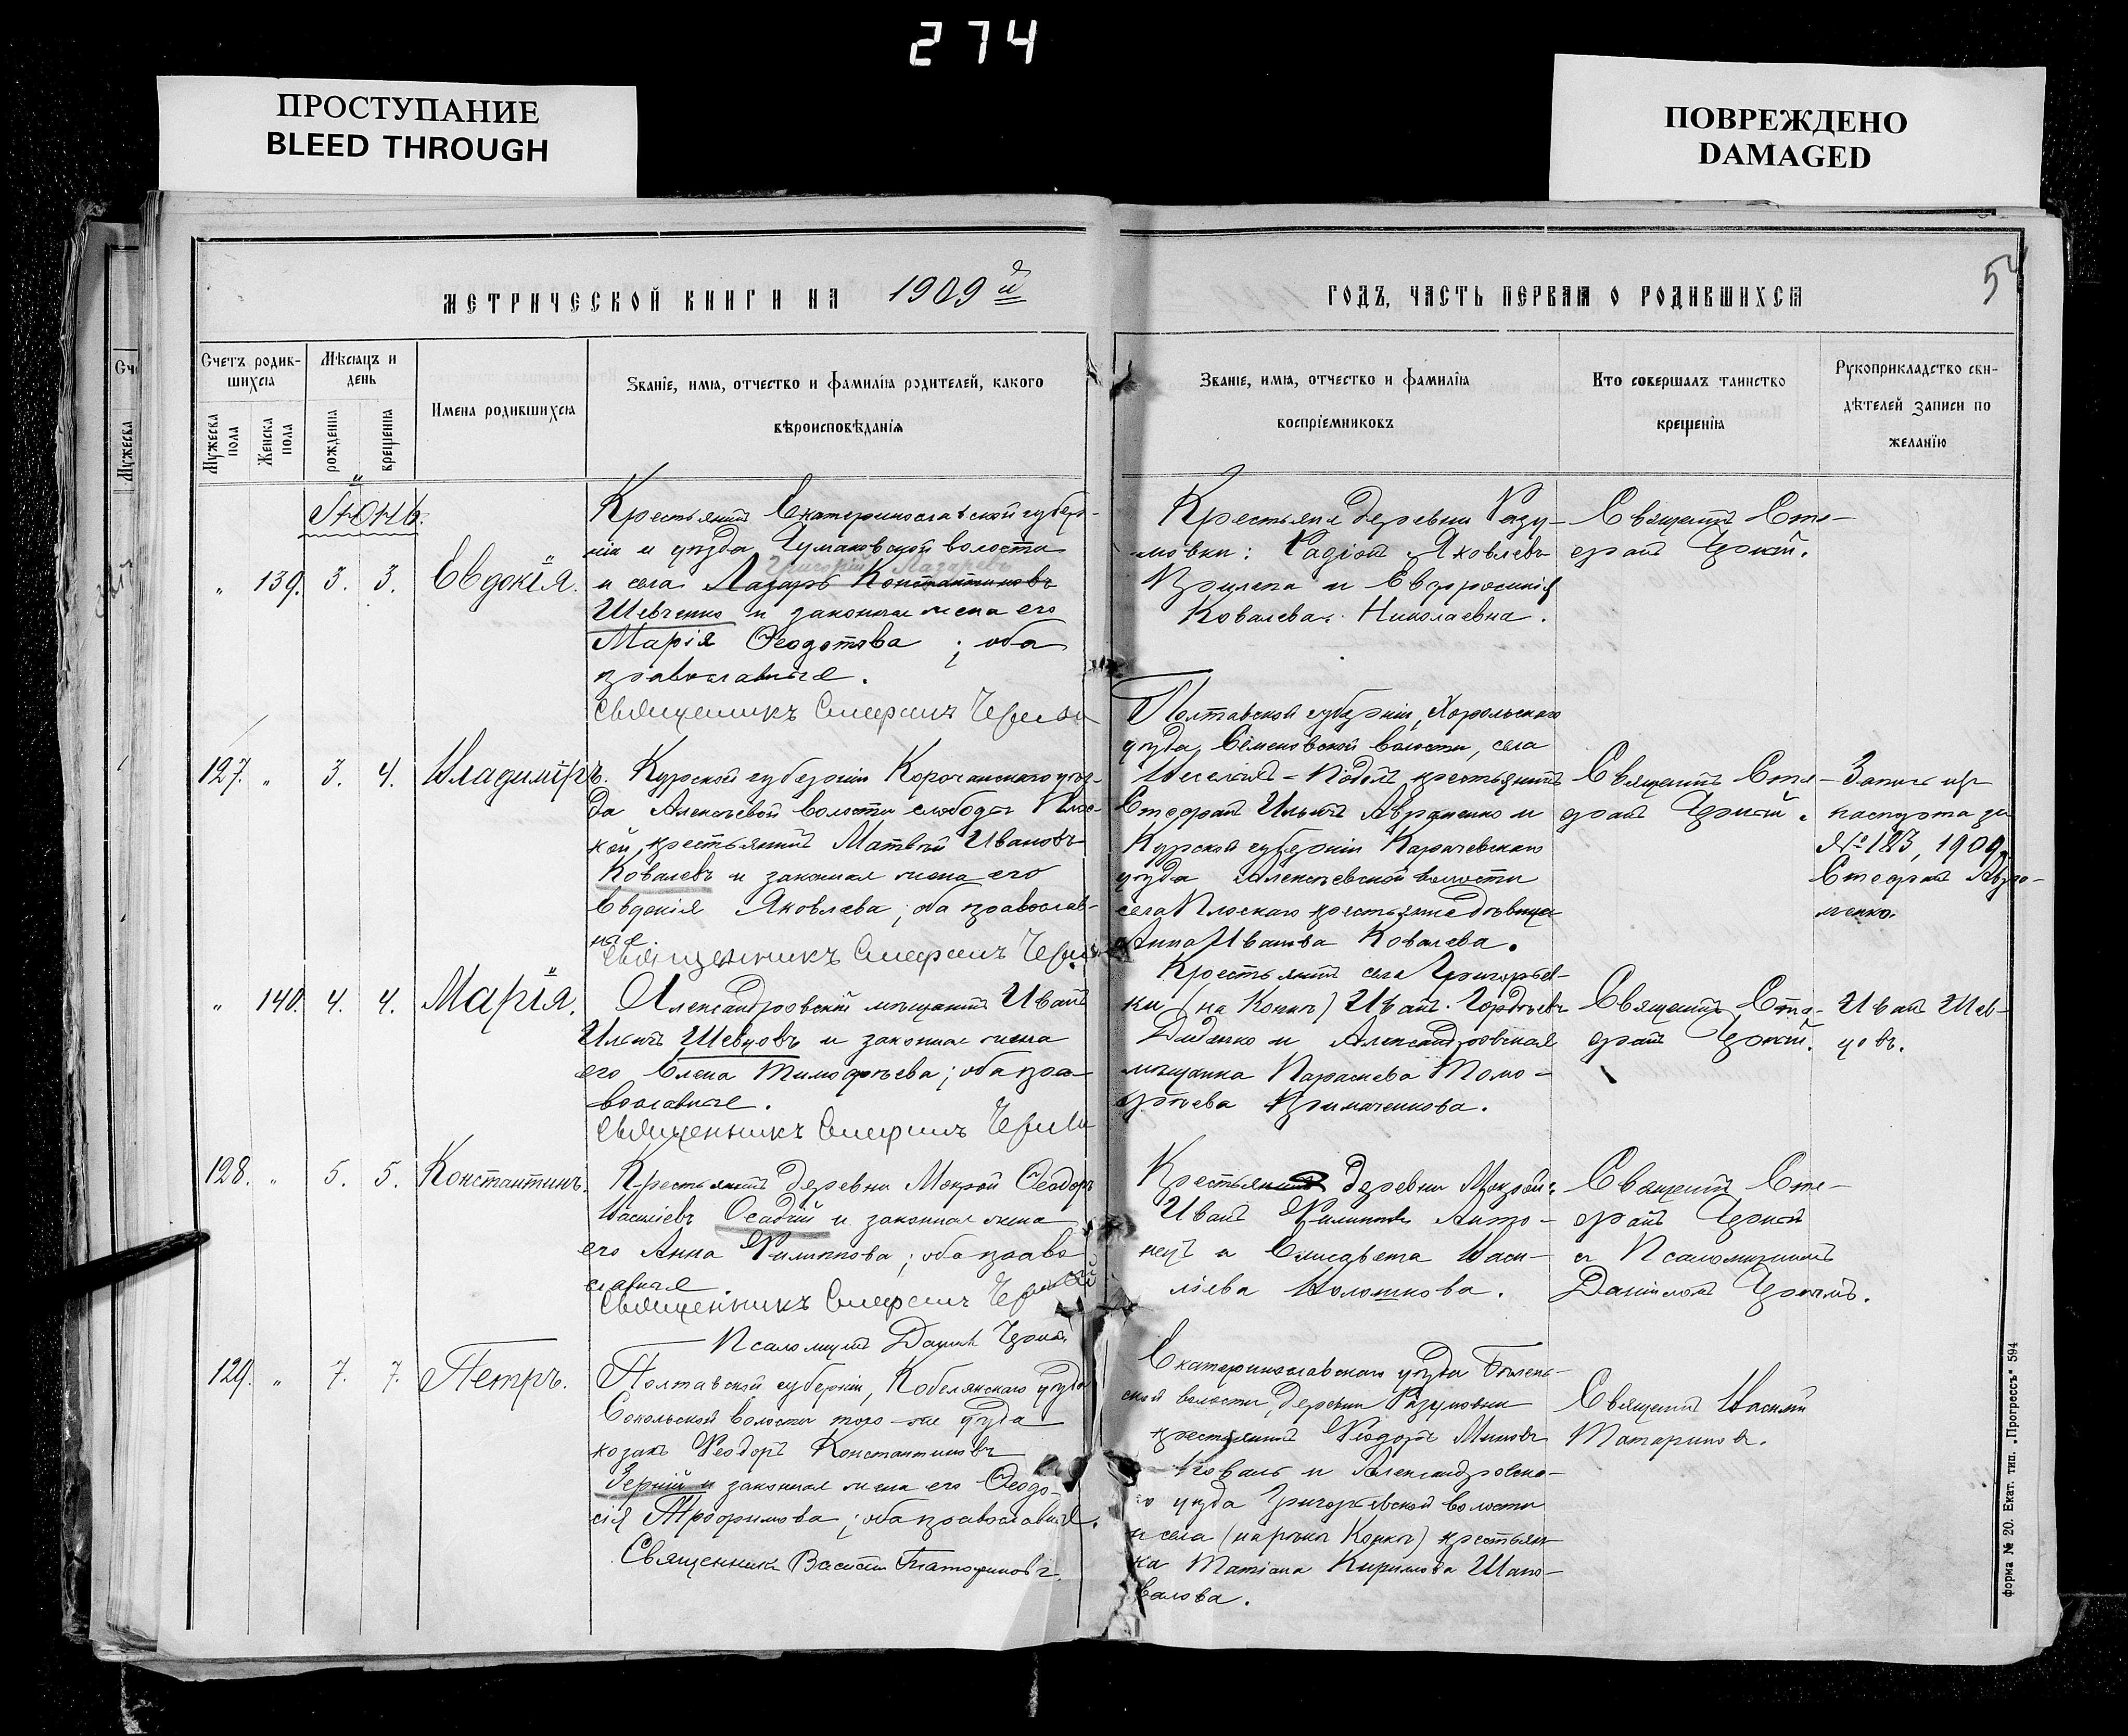 274
ПРОСТУПАНИЕ
BLEED THROUGH
ПОВРЕЖДЕНО
DAMAGED
МЕТРИЧЕСКОЙ КНИГИ НА 1909й
ГОДЪ, ЧАСТЬ ПЕРВАЯ О РОДИВШИХСЯ
54
Счетъ родив-
шихся
Мужеска пола
Женска пола
Мѣсяцъ и
день
рожденія
крещенія
Имена родившихся
Званіе, имя, отчество и фамилія родителей, какого
вѣроисповѣданія
Званіе, имя, отчество и фамилія
воспріемниковъ
Кто совершалъ таинство
крещенія
Рукоприкладство сви-
дѣтелей записи по
желанію
Іюнь.
„ 139. 3. 3. Евдокія.
Крестьянинъ Екатеринославской губер-
ніи и уѣзда Чумаковской волости
Григорій Лазаревъ
и села Лазарь Константиновъ
Шевченко и законная жена его
Марія Ѳеодотова ; оба
православные.
Священникъ Стефанъ
Крестьяне деревни Разу-
мовки: Радіонъ Яковлевъ
и Евфросинія
Ковалева Николаевна.
Священникъ Сте-
фанъ Чрный.
127. „ 3. 4. Владиміръ.
Курской губерніи Корочанскаго уѣз-
да Алексѣевой волости слободы Плос-
кой, крестьянинъ Матвѣй Ивановъ
Ковалевъ и законная жена его
Евдокія Яковлева; оба православ-
ные
Священникъ Стефанъ
Полтавской губерніи, Хорольскаго
уѣзда, Семеновской волости, села
Подолъ крестьянинъ
Стефанъ Ильинъ Авраменко и
Курской губерніи
уѣзда Алексѣевской волости
села Плоскаго крестьянка дѣвица
Анна Иванова Ковалева.
Священникъ Сте-
фанъ Чрный.
Запись изъ
паспорта за
№ 183, 1909
Стефанъ Авра-
менко.
„ 140. 4. 4. Марія.
Александровскій мѣщанинъ Иванъ
Ильинъ Шевцовъ и законная жена
его Елена Тимофѣева; оба пра-
вославные.
Священникъ Стефанъ
Крестьянинъ села Григорьев-
ки (на Конкѣ) Иванъ Гордѣевъ
Диденко и Александровская
мѣщанка Параскева Тимо-
фѣева
Священникъ Сте-
фанъ Чрный.
Иванъ Шев-
цовъ.
128. „ 5. 5. Константинъ.
Крестьянинъ деревни Мокрой Ѳеодоръ
Василіевъ Осадчій и законная жена
его Анна Филиппова; оба право-
славные.
Священникъ Стефанъ
Псаломщикъ
Крестьяне деревни Мокрой:
Иванъ Филипповъ Анто-
нецъ и Елисавета Васи-
ліева Волошкова.
Священникъ Сте-
фанъ Чрный
и Псаломщикъ
Даніилъ
129. „ 7. 7. Петръ.
Полтавской губерніи, Кобелякскаго уѣзда
Сокольской волости того-же уѣзда
козакъ Ѳеодоръ Константиновъ
и законная жена его Ѳеодо-
сія Трофимова; оба православные.
Священникъ Василій Татариновъ.
Екатеринославскаго уѣзда Бѣлень-
ской волости, деревни Разумовки
крестьянинъ Ѳеодоръ
Коваль и Александровска-
го уѣзда Григорьевской волости
и села (на рѣчкѣ Конкѣ) крестьян-
ка Татіана Кирилова Шапо-
валова.
Священникъ Василій
Татариновъ.
форма № 20. Екат. тип. „Прогрессъ" 594